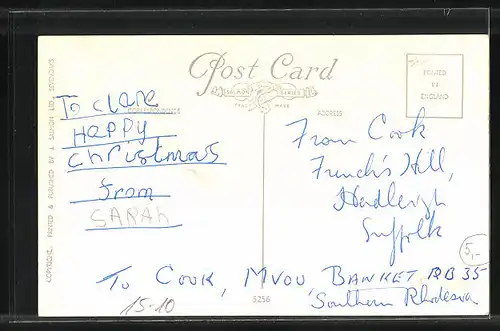 Post Card
SALMON SERIES
TRADE MARK
CORRESPONDENCE
ADDRESS
PRINTED
IN
ENGLAND
COPYRIGHT, PRINTED & PUBLISHED BY J. SALMON LTD., SEVENOAKS
To Clare
Happy
Christmas
from
SARAH
From Cook
French's Hill,
Hadleigh
Suffolk
5,-
To Cook, Mvou, BANKET, RB 35
Southern Rhodesia
15-10
5256